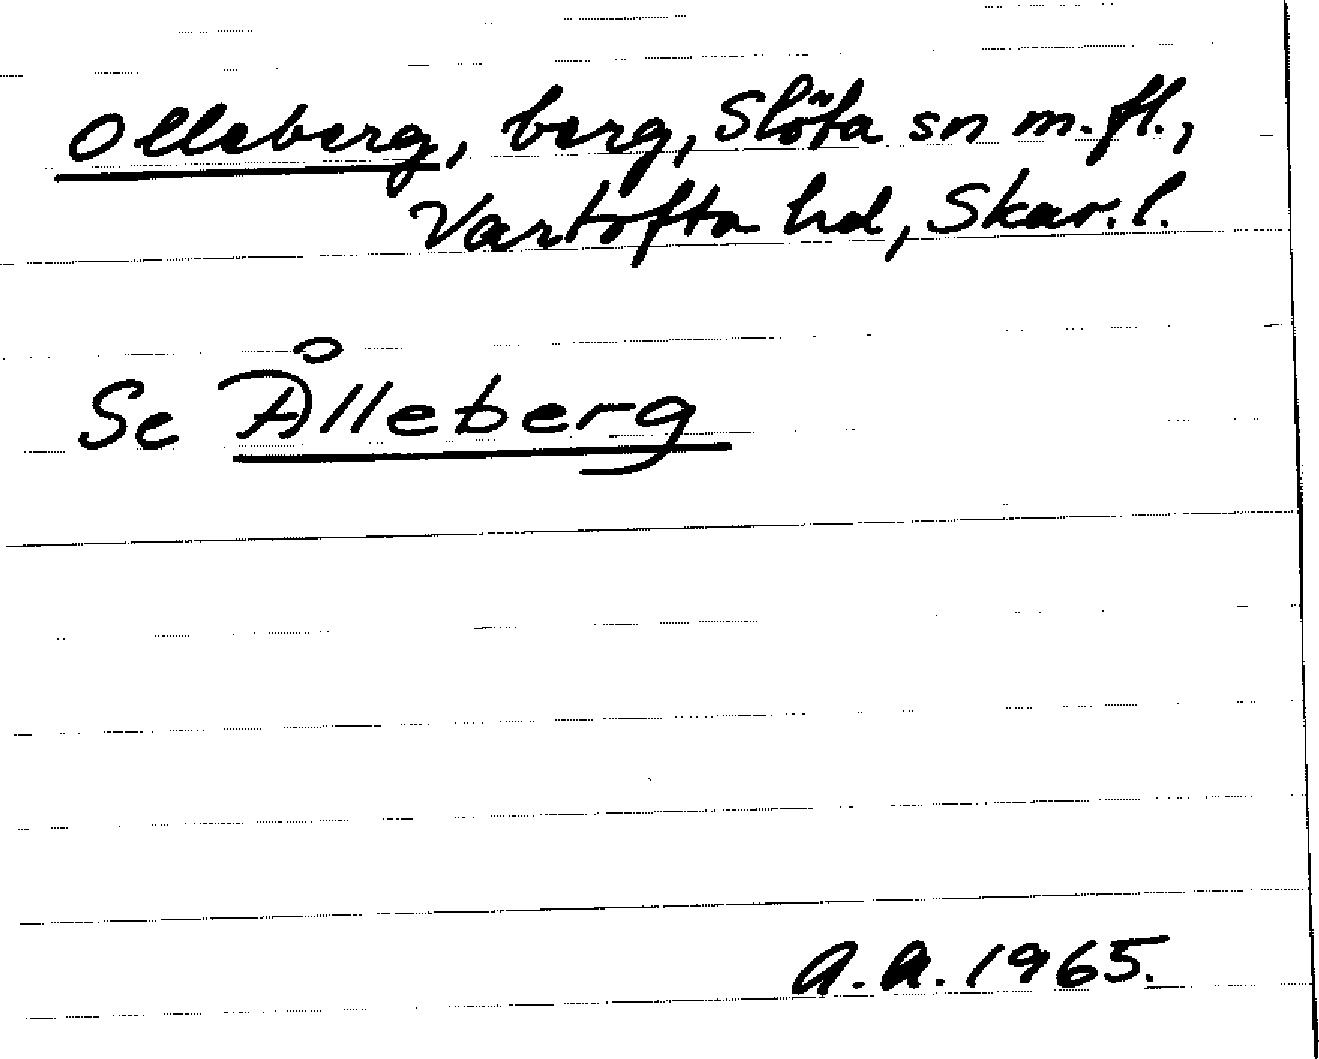 Olleberg, berg, Slöta sn m.fl.,
Vartofta hd, Skar.l.
Se Ålleberg
A.A. 1965.